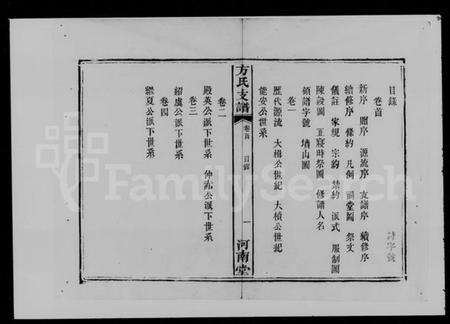 目錄
卷首
新序 贈序 源流序 支譜序 續修序
續修序 條約 凡例 祠堂圖 祭文
儀註 家規 宗約 禁約 派式 服制圖
陳設圖 正寢時祭圖 修譜人名
領譜字號 墳山圖
卷一
歷代源流 大樹公世紀 大楨公世紀
能安公世系
方氏支譜 卷首 目錄 一 河南堂
卷二
殿英公派下世系 仲 公派下世系
卷三
紹虞公派下世系
卷四
繼夏公派下世系
FamilySearch